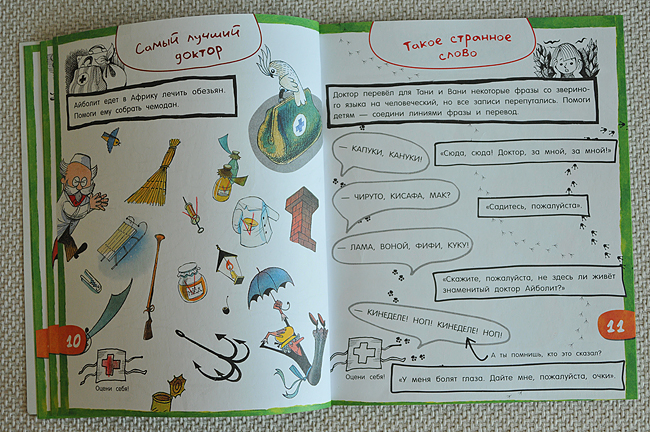 Самый лучший
доктор
Айболит едет в Африку лечить обезьян.
Помоги ему собрать чемодан.
МЁД
10
Оцени себя!
Такое странное
слово
Доктор перевёл для Тани и Вани некоторые фразы со зверино-
го языка на человеческий, но все записи перепутались. Помоги
детям — соедини линиями фразы и перевод.
— КАПУКИ, КАНУКИ!
«Сюда, сюда! Доктор, за мной, за мной!»
— ЧИРУТО, КИСАФА, МАК?
«Садитесь, пожалуйста».
— ЛАМА, ВОНОЙ, ФИФИ, КУКУ!
«Скажите, пожалуйста, не здесь ли живёт
знаменитый доктор Айболит?»
— КИНЕДЕЛЕ! НОП! КИНЕДЕЛЕ! НОП!
11
А ты помнишь, кто это сказал?
Оцени себя!
«У меня болят глаза. Дайте мне, пожалуйста, очки».